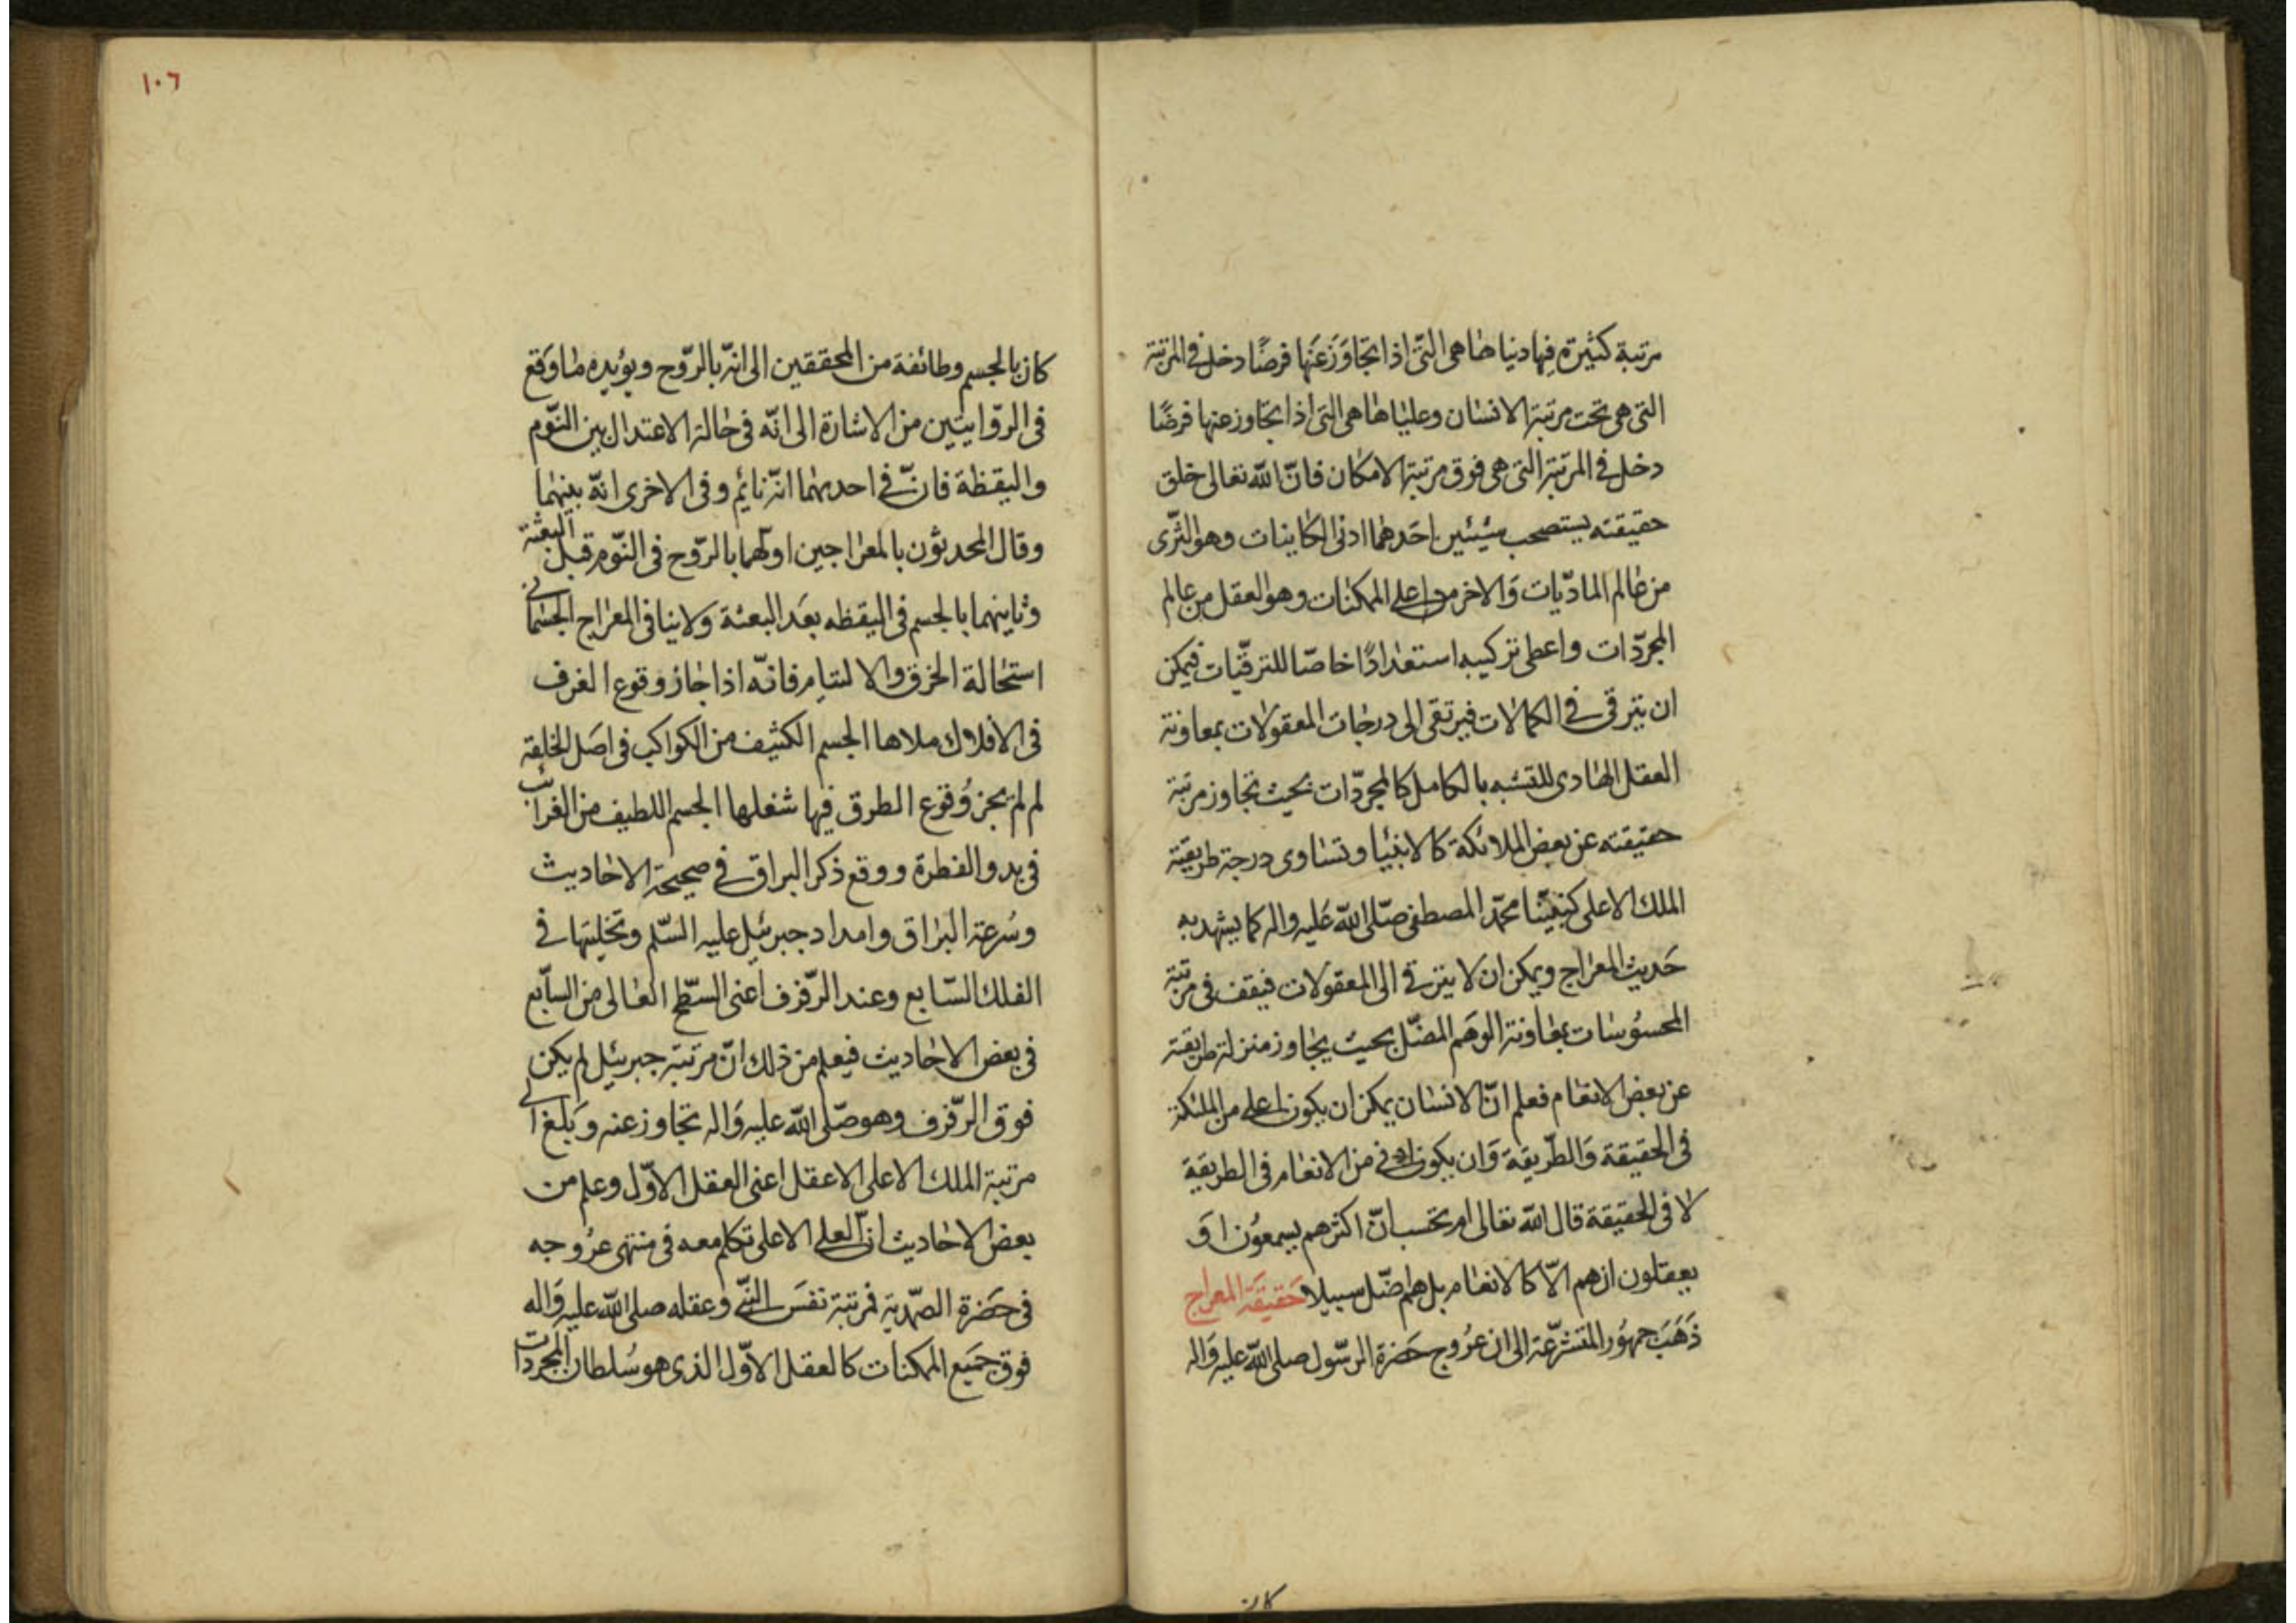 مرتبة كثيرة فيها دنياها هى التى اذا تجاوز عنها فرضًا دخل فى المرتبة
التى هى تحت مرتبة الانسان وعلياها هى التى اذا تجاوز عنها فرضًا
دخل فى المرتبة التى هى فوق مرتبة الامكان فانّ الله تعالى خلق
حقيقته يستصحب شيئين احدهما ادنى الكاينات وهو الثّرى
من عالم الماديّات وَالاخر من اعلى الممكنات وهو العقل من عالم
المجرّدات واعطى تركيبه استعدادًا خاصّا للترقّيات فيمكن
ان يترقى فى الكمالات فيرتقى الى درجات المعقولات بمعاونة
العقل الهادى للتشبه بالكامل كالمجرّدات بحيث تجاوز مرتبة
حقيقته عن بعض الملائكة كالانبيا وتساوى درجة طريقية
الملك الاعلى كنبيّنا محمّد المصطفى صلّى الله عَليه واله كما يشهد به
حَديث المعراج ويمكن ان لا يترقى الى المعقولات فيقف فى مرتبة
المحسُوسات بمعاونة الوَهم المضلّ بحيث يجاوز منزلة طريقية
عن بعض الانعام فعلم انّ الانسان يمكن ان يكون اعلى من الملئكة
فى الحقيقة وَالطّريقة وَان يكون ادنى من الانعام فى الطريقة
لا فى الحقيقة قال الله تعالى ام تحسب انّ اكثرهم يسمعُون اوَ
يعقلون ان هم الّا كالانعام بل هم اضّل سبيلا حَقيقَة المعراج
ذَهَبَ جمهوُر المتشرّعة الى ان عرُوج حَضرة الرسّول صلى الله عليه وَاله
كان
١٠٦
كان بالجسم وطائفة من المحققين الى انّه بالرّوح ويؤيده ما وَقع
فى الرّوايتين من الاشارة الى انّه فى حالة الاعتدال بين النّوم
واليقظة فانّ فى احديهما انّه نايم وفى الاخرى انّه بينهما
وقال المحدثون بالمعراجين اولهما بالرّوح فى النّوم قبل البعثة
وثاينهما بالجسم فى اليقظه بعَد البعثة وَلا ينافى المعراج الجسمانى
استحالة الخرق والالتيام فانّه اذا جاز وقوع الغرف
فى الافلاك ملاها الجسم الكثيف من الكواكب فى اصَل الخلقة
لم لم يجز وُقوع الطرق فيها شغلها الجسم اللطيف من الغرائب
فى بدو الفطرة ووقع ذكر البراق فى صحيحة الاحاديث
وسُرعة البراق وامداد جبرئيل عليه السّلم وتخليتها فى
الفلك السّابع وعند الرّفرف اعنى السّطح العالى من السّابع
فى بعض الاحاديث فيعلم من ذلك انّ مرتبة جبرئيل لم يكن
فوق الرّفرف وهو صّلى الله عليه وَاله تجاوز عنه وَبلغ الى
مرتبة الملك الاعلى الاعقل اعنى العقل الاوّل وعلم من
بعض الاحاديث انّ العلى الاعلى تكلم معه فى منتهى عرُوجه
فى حَضرة الصّمدية فمرتبة نفسَ النّبى وَعقله صلى الله عليه وَاله
فوق جَميع الممكنات كالعقل الاوّل الذى هو سُلطان المجرّدات